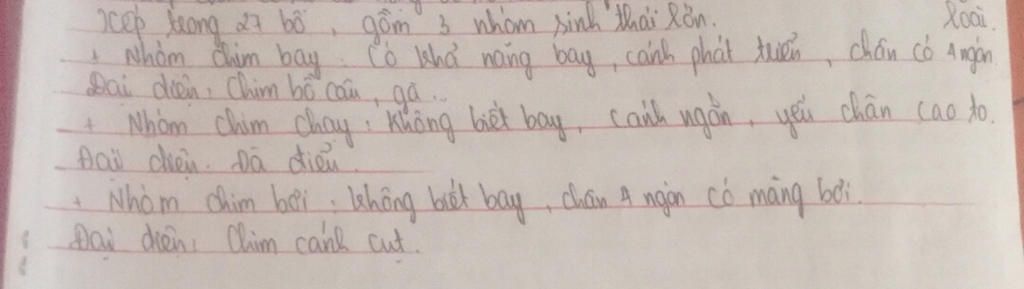 xếp trong 27 bộ, gồm 3 nhóm sinh thái lớn. loài.
+ Nhóm chim bay. Có khả năng bay, cánh phát triển, chân có 4 ngón
Đại diện: Chim bồ câu, gà...
+ Nhóm chim chạy: Không biết bay, cánh ngắn, yếu chân cao to.
Đại diện. Đà điểu.
+ Nhóm chim bơi: không biết bay, chân 4 ngón có màng bơi.
Đại diện: Chim cánh cụt.